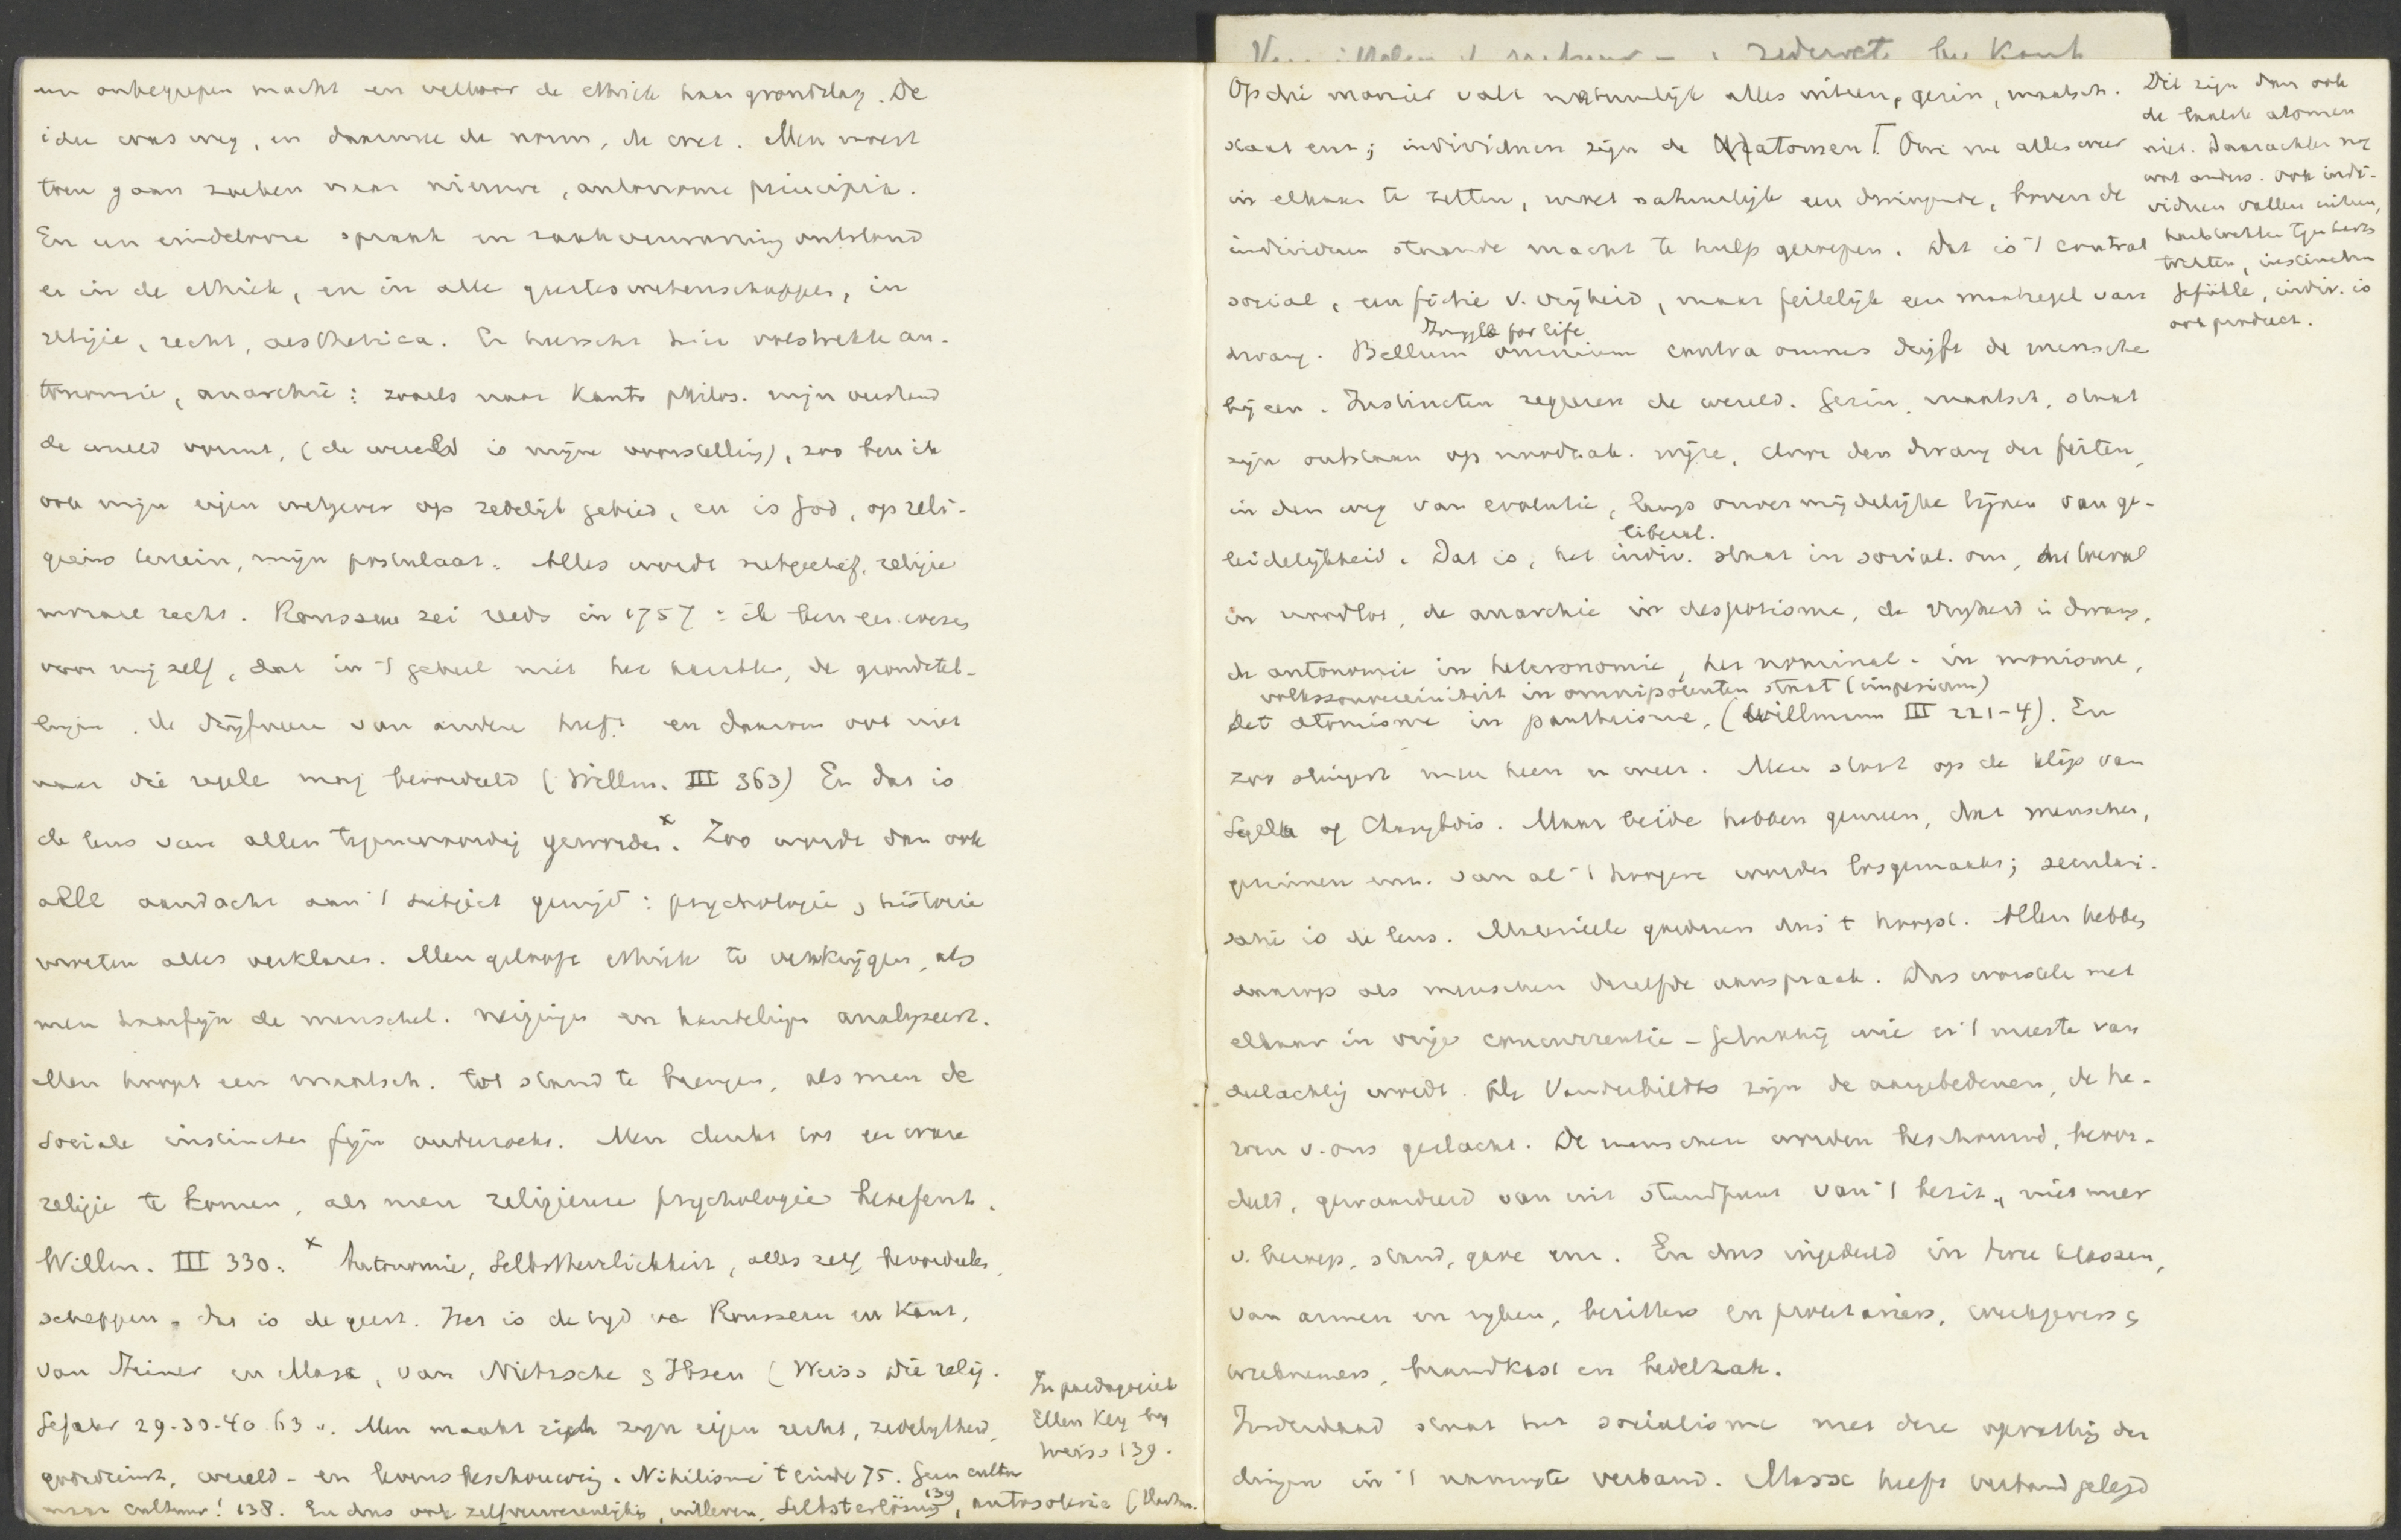 een onbegrepen macht en verloor de ethiek haar grondslag. De
idee was weg, en daarmee de norm, de wet. Men moest
toen gaan zoeken naar nieuwe, autonome principia.
En een eindelooze spraak en zaakverwarring ontstond
er in de ethiek, en in alle geesteswetenschappen, in
religie, recht, aesthetica. Er heerscht hier volstrekte au-
tonomie, anarchie: zooals naar Kants philos. mijn verstand
de wereld vormt, (de wereld is mijne voorstelling), zoo ben ik
ook mijn eigen wetgever op zedelijk gebied, en is God, op reli-
gieus terrein, mijn postulaat. Alles wordt subjectief, religie
moraal recht. Rousseau zei reeds in 1757: ik ben een wezen
voor mijzelf, dat in 't geheel niet het karakter, de grondstel-
lingen, de drijfveeren van andere heeft en daarom ook niet
naar die regels mag beoordeeld (Willm. III 363) En dat is
de leus van allen tegenwoordig geworden.x Zoo wordt dan ook
alle aandacht aan 't subject gewijd: psychologie, historie
moeten alles verklaren. Men gelooft ethiek te verkrijgen, als
men haarfijn de menschel. neigingen en handelingen analyseert.
Men hoopt een maatsch. tot stand te brengen, als men de
sociale instincten fijn onderzoekt. Men denkt tot een ware
religie te komen, als men religieuse psychologie beoefent.
Willm. III 330. x Autonomie, Selbstherrlichkeit, alles zelf beoordeelen,
scheppen, dat is de geest. Het is de tijd van Rousseau en Kant,
van Steiner en Marx, van Nietzsche & Ibsen (Weiss Die relig.
Gefahr 29-30-40.63 v. Men maakt zich zijn eigen recht, zedelijkheid,
godsdienst, wereld- en levensbeschouwing. Nihilisme 't einde 75. Geen cultus
maar cultuur! 138. En dus ook zelfverwerenlijking, uitleven, Selbsterlösung 139, autosoterie (Hartm.
In paedagogiek
Ellen Key bij
Weiss 139.
zedewet bij Kant
Op die manier valt natuurlijk alles uiteen, gezin, maatsch.
staat enz; individuen zijn de atomen T. Om nu alles weer
in elkaar te zetten, moet natuurlijk een dwingende, boven de
individuen staande macht te hulp geroepen. Dat is 't contrat
social, een fictie v. vrijheid, maar feitelijk een maatregel van
Struggle for life
dwang. Bellum omnium contra omnes drijft de mensche
bijeen. Instincten regeeren de wereld. Gezin, maatsch, staat
zijn ontstaan op noodzak. wijze, door den dwang der feiten,
in den weg van evolutie, langs onvermijdelijke lijnen van ge-
liberal.
leidelijkheid. Dat is, het indiv. slaat in social. om, het toeval
in noodlot, de anarchie in despotisme, de vrijheid in dwang,
de autonomie in heteronomie, het nominal. in monisme,
volkssouvereiniteit in omnipotenten staat (imperium)
het atomisme in pantheisme, (Willmann III 221-4). En
zoo slingert men heen en weer. Men stoot op de klip van
Scylla of Charybdis. Maar beide hebben gemeen, dat menschen,
gezinnen enz. van al 't hoogere worden losgemaakt; seculari-
satie is de leus. Materieele goederen dus 't hoogst. Allen hebben
daarop als menschen dezelfde aanspraak. Dus worstele met
elkaar in vrije concurrentie – gelukkig wie er 't meeste van
deelachtig wordt. De Vanderbildts zijn de aangebedenen, de he-
roen v. ons geslacht. De menschen worden beschouwd, beoor-
deeld, gewaardeerd van uit standpunt van 't bezit, niet meer
v. beroep, stand, gave enz. En dus ingedeeld in twee klassen,
van armen en rijken, bezitters en proletariers, werkgevers &
werknemers, brandkast en bedelzak.
Inderdaad staat het socialisme met deze opvatting der
dingen in 't nauwste verband. Marx heeft verband gelegd
Dit zijn dan ook
de laatste atomen
niet. Daarachter nog
wat anders. Ook indi-
viduen vallen uiteen,
trekken, instincten
Gefühle, indiv. is
ook product.